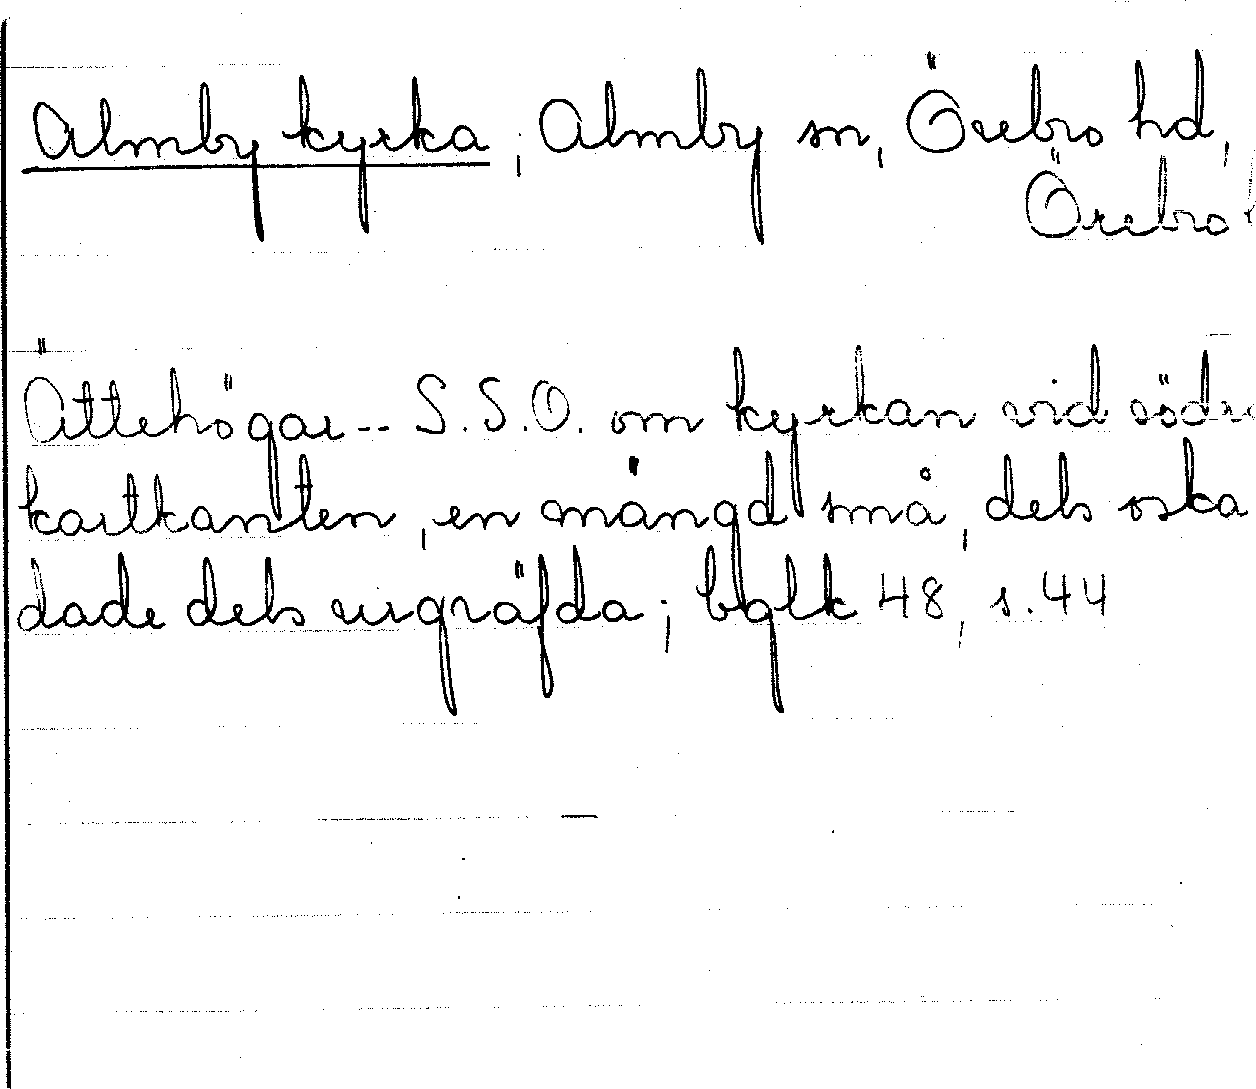 Almby kyrka, Almby sn, Örebro hd,
Örebro
Ättehögar-- S.S.O. om kyrkan vid södra
kartkanten, en mängd små, dels oska
dade dels urgräfda; bglk 48, s. 44